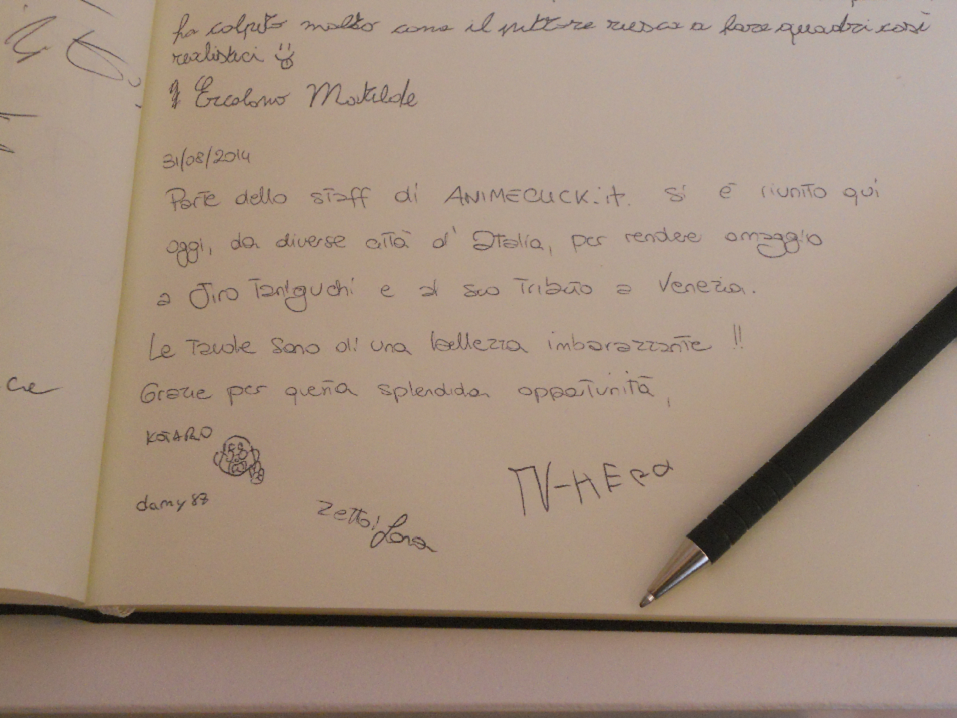 ha colpito molto come il pittore riesca a fare quadri così
realistici
Ercolano Matilde
31/08/2014
Parte dello staff di ANIMECLICK.it si è riunito qui
oggi, da diverse città d'Italia, per rendere omaggio
a Jiro Taniguchi e al suo Tributo a Venezia.
Le tavole sono di una bellezza imbarazzante !!
Grazie per questa splendida opportunità,
KOTARO
damy87
Zettai Lara
TV-HErO
Cre